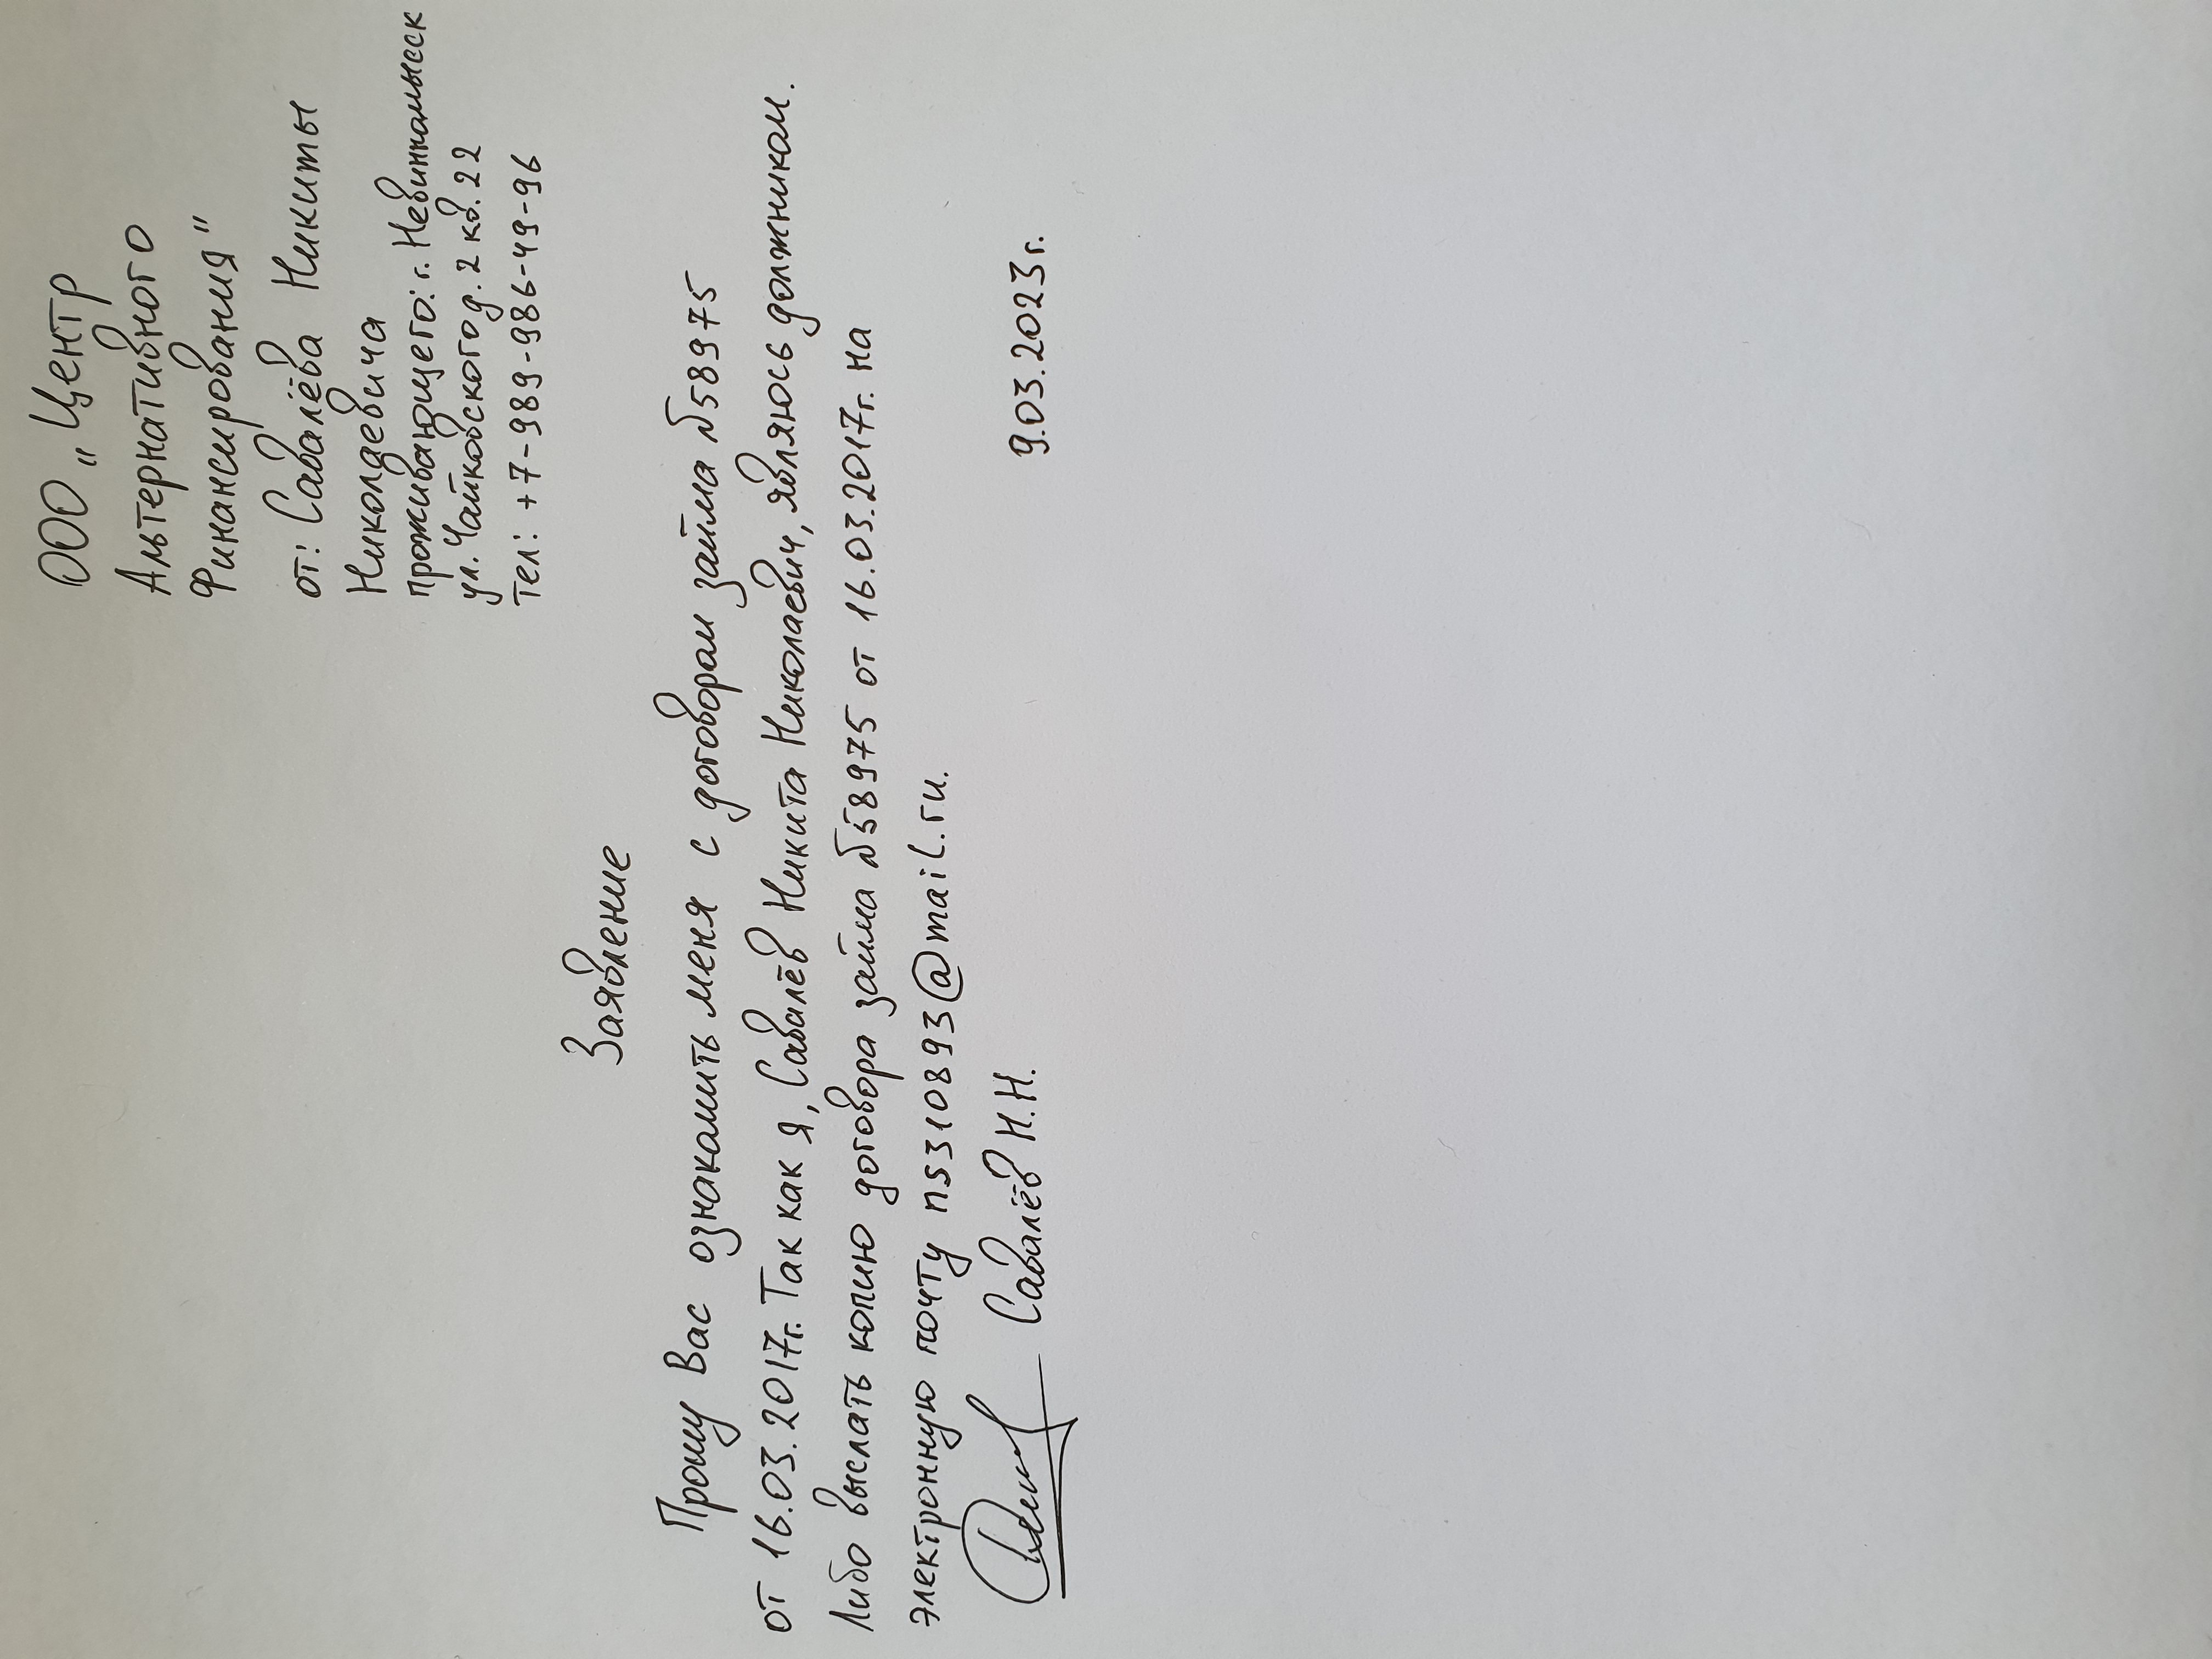 ООО „Центр
Альтернативного
Финансирования"
от: Савалёва Никиты
Николаевича
проживающего: г. Невинномысск
ул. Чайковского д. 2 кв. 22
тел: +7-989-986-49-96
Заявление
Прошу Вас ознакомить меня с договором займа №58975
от 16.03.2017г. Так как я, Савалёв Никита Николаевич, являюсь должником.
Либо выслать копию договора займа №58975 от 16.03.2017г. на
электронную почту ns310893@mail.ru.
Савалёв Н.Н. 9.03.2023г.